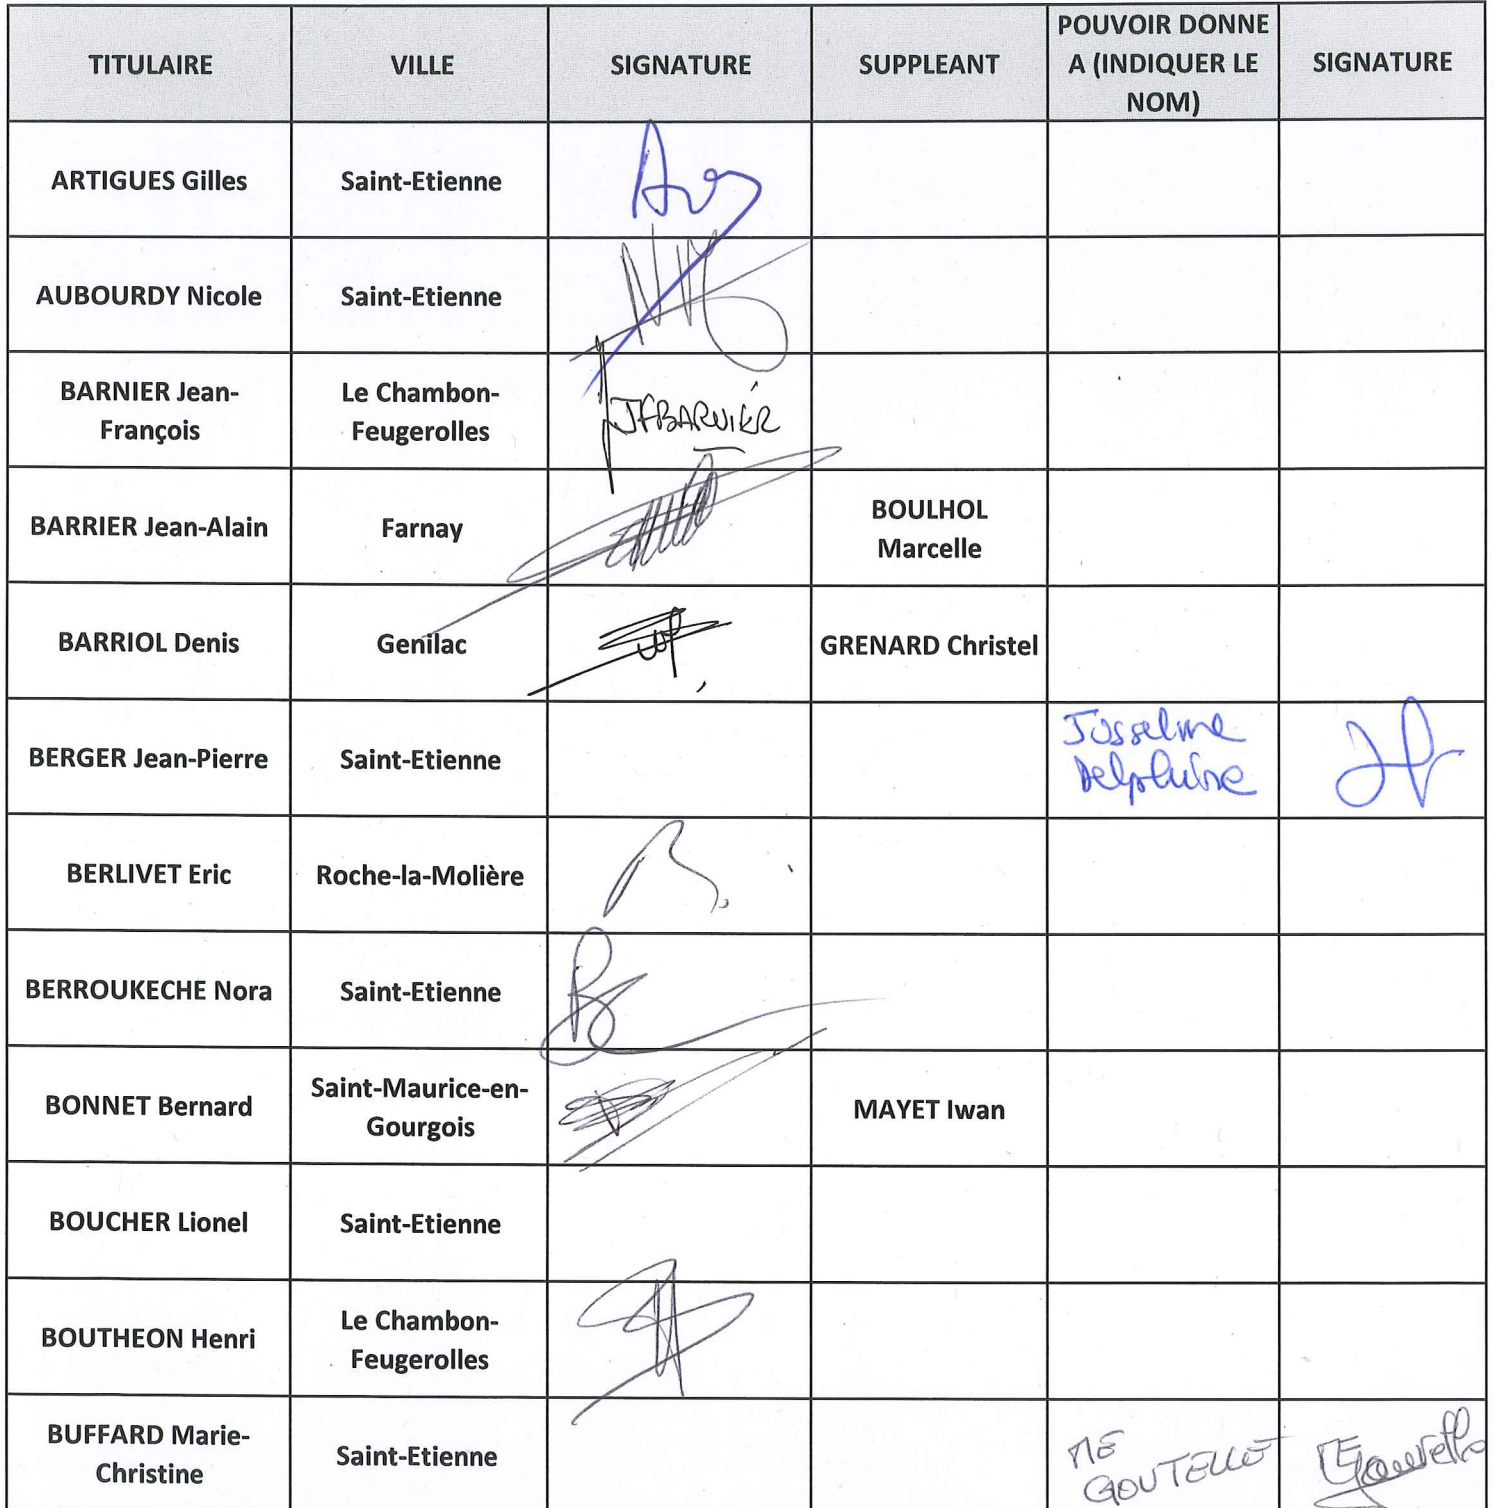 TITULAIRE VILLE SIGNATURE SUPPLEANT POUVOIR DONNE A (INDIQUER LE NOM) SIGNATURE
ARTIGUES Gilles Saint-Etienne
AUBOURDY Nicole Saint-Etienne
BARNIER Jean-
François
Le Chambon-
Feugerolles
JFBARNIER
BARRIER Jean-Alain Farnay
BOULHOL
Marcelle
BARRIOL Denis Genilac GRENARD Christel
BERGER Jean-Pierre Saint-Etienne
Josselme
Delphine
BERLIVET Eric Roche-la-Molière
BERROUKECHE Nora Saint-Etienne
BONNET Bernard
Saint-Maurice-en-
Gourgois
MAYET Iwan
BOUCHER Lionel Saint-Etienne
BOUTHEON Henri
Le Chambon-
Feugerolles
BUFFARD Marie-
Christine
Saint-Etienne
ME
GOUTELLE